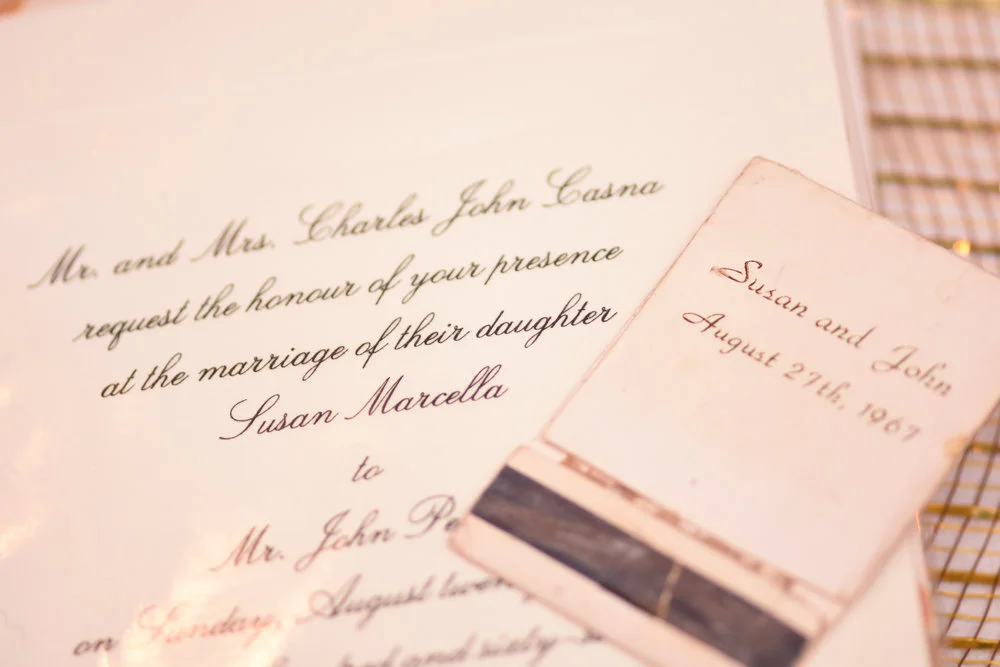 Mr. and Mrs. Charles John Casna
request the honour of your presence
at the marriage of their daughter
Susan Marcella
to
Mr. John
on Sunday, August
and sixty
Susan and John
August 27th, 1967